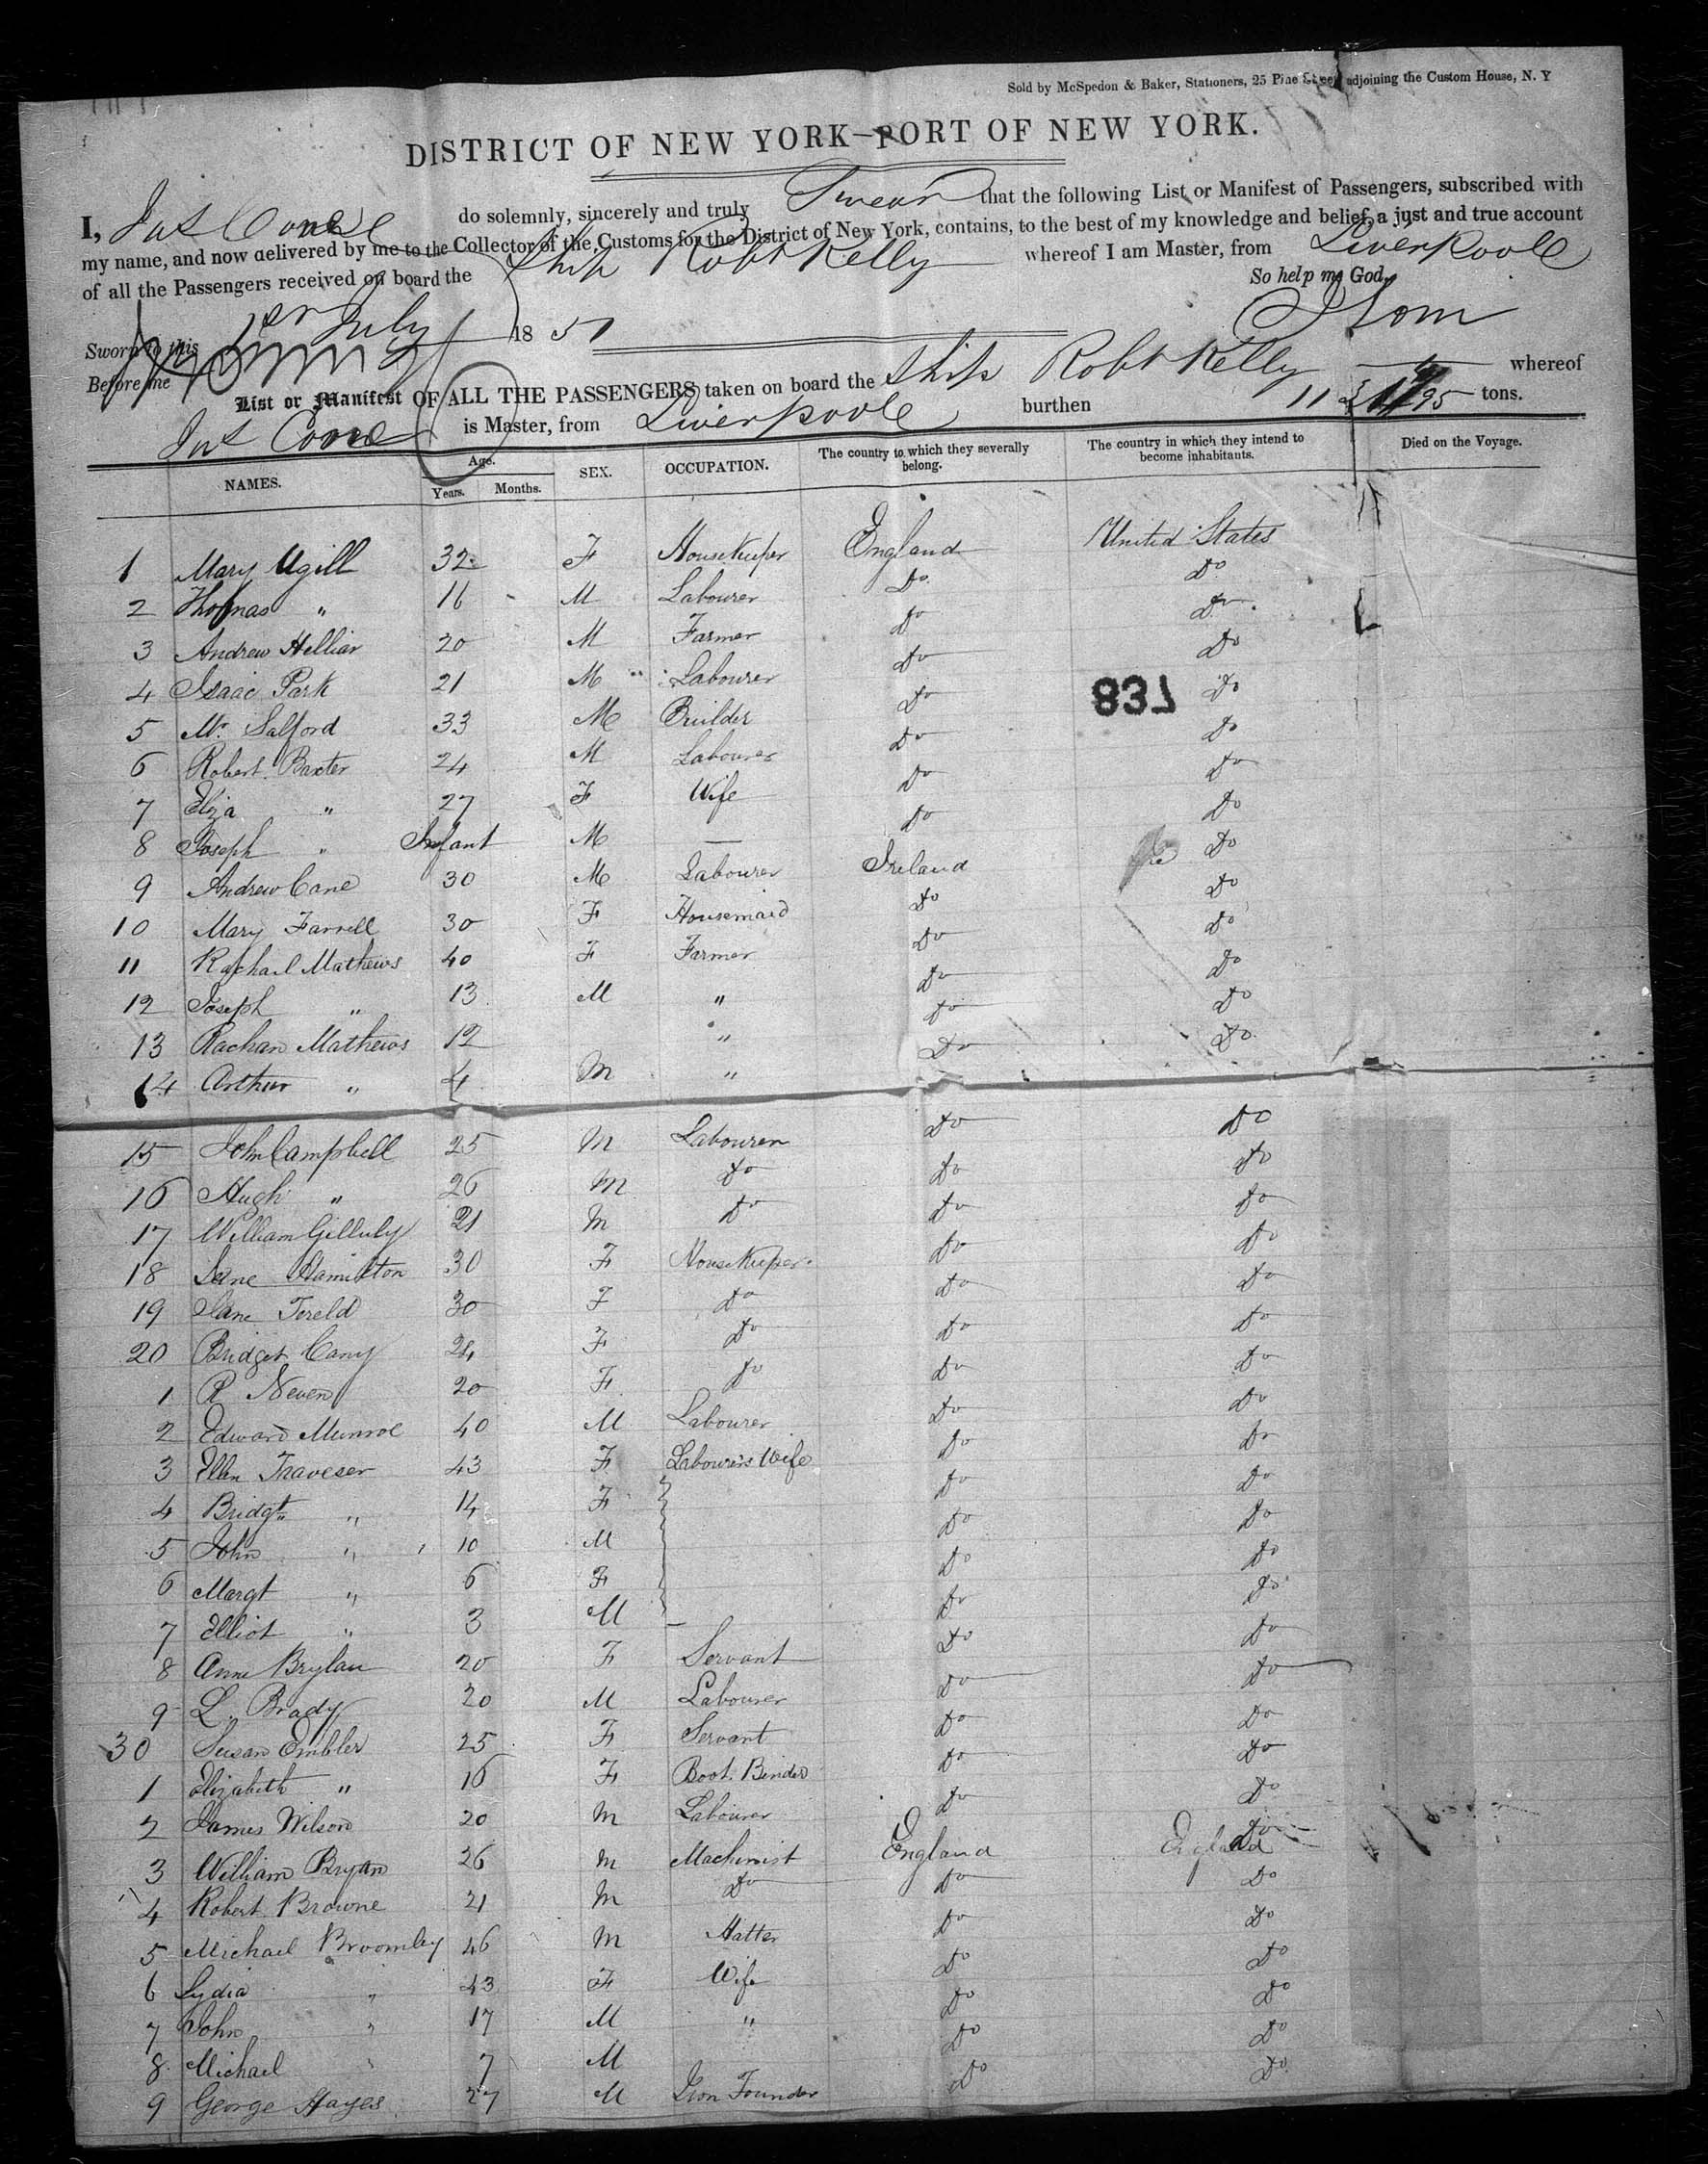 Sold by McSpedon & Baker, Stationers, 25 Pine Street adjoining the Custom House, N. Y
DISTRICT OF NEW YORK—PORT OF NEW YORK.
I, do solemnly, sincerely and truly Swear that the following List or Manifest of Passengers, subscribed with
my name, and now delivered by me to the Collector of the Customs for the District of New York, contains, to the best of my knowledge and belief, a just and true account
of all the Passengers received on board the Ship Robt Kelly whereof I am Master, from Liverpoole
So help me God.
Sworn to this July 1851
Before me
List or Manifest OF ALL THE PASSENGERS taken on board the Ship Robt Kelly whereof
is Master, from Liverpoole burthen tons.
NAMES. Age. Years. Months. SEX. OCCUPATION. The country to which they severally belong. The country in which they intend to become inhabitants. Died on the Voyage.
1 Mary Ugill 32 F Housekeeper England United States
2 Thomas " 16 M Labourer Do Do
3 Andrew Helliar 20 M Farmer Do Do
4 Isaac Park 21 M Labourer Do Do
837
5 Mr. Salford 33 M Builder Do Do
6 Robert Baxter 24 M Labourer Do Do
7 Eliza " 27 F Wife Do Do
8 Joseph " Infant M — Do Do
9 Andrew Cane 30 M Labourer Ireland Do
10 Mary Farrell 30 F Housemaid Do Do
11 Rachael Mathews 40 F Farmer Do Do
12 Joseph " 13 M " Do Do
13 Rachan Mathews 12 " Do Do
14 Arthur " 4 M " Do Do
15 John Campbell 25 M Labourer Do Do
16 Hugh " 26 M Do Do Do
17 William Gilluly 21 M Do Do Do
18 Jane Hamilton 30 F Housekeeper Do Do
19 Jane Tereld 30 F Do Do Do
20 Bridget Cany 24 F Do Do Do
1 R Neven 20 F Do Do Do
2 Edward Munroe 40 M Labourer Do Do
3 Ellen Traveser 43 F Labourers Wife Do Do
4 Bridgt " 14 F Do Do
5 John " 10 M Do Do
6 Margt " 6 F Do Do
7 Elliot " 3 M Do Do
8 Anne Brylan 20 F Servant Do Do
9 L. Brady 20 M Labourer Do Do
30 Susan Embler 25 F Servant Do Do
1 Elizabeth " 16 F Boot Binder Do Do
2 James Wilson 20 M Labourer Do Do
3 William Bryan 26 M Machinist England England Do
4 Robert Browne 21 M Do Do Do
5 Michael Broomley 46 M Hatter Do Do
6 Lydia " 43 F Wife Do Do
7 John " 17 M " Do Do
8 Michael " 7 M Do Do
9 George Hayes 27 M Iron Founder Do Do